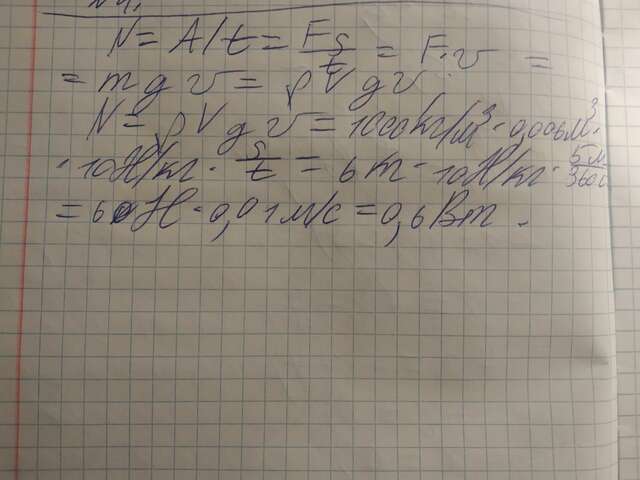 N = A/t = Fs/t = F·v =
= mgv = ρVgv
N = ρVgv = 1000кг/м³·0,006м³·
·10Н/кг·s/t = 6кг·10Н/кг·5м/360с
= 60Н·0,01м/с = 0,6Вт.